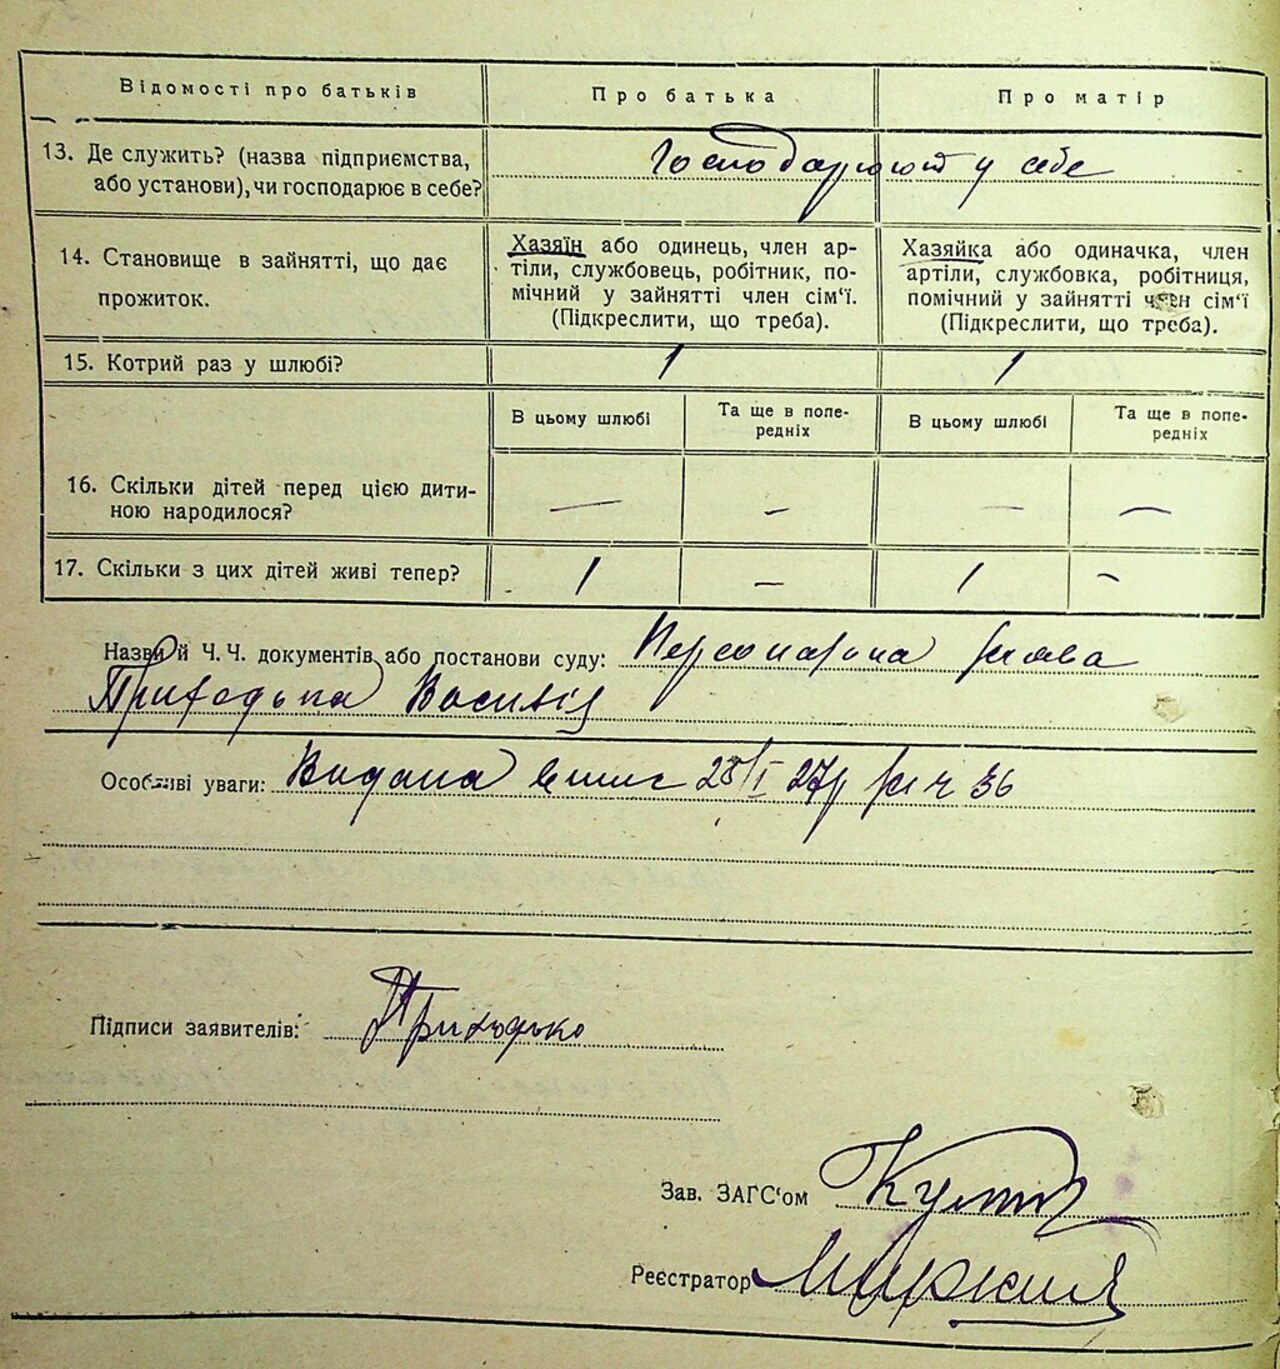 Відомості про батьків Про батька Про матір
13. Де служить? (назва підприємства, або установи), чи господарює в себе?
Господарюют у себе
14. Становище в зайнятті, що дає прожиток.
Хазяїн або одинець, член ар-
тіли, службовець, робітник, по-
мічний у зайнятті член сім‘ї.
(Підкреслити, що треба).
Хазяйка або одиначка, член
артіли, службовка, робітниця,
помічний у зайнятті член сім‘ї
(Підкреслити, що треба).
15. Котрий раз у шлюбі? 1 1
В цьому шлюбі
Та ще в попе-
редніх
В цьому шлюбі
Та ще в попе-
редніх
16. Скільки дітей перед цією дити-
ною народилося? — — — —
17. Скільки з цих дітей живі тепер? 1 — 1 —
Назви й Ч.Ч. документів або постанови суду: Персональна
Приходька Василія
Особливі уваги: Видана 28/I 27р ч 36
Підписи заявителів: Приходько
Зав. ЗАГС‘ом
Реєстратор